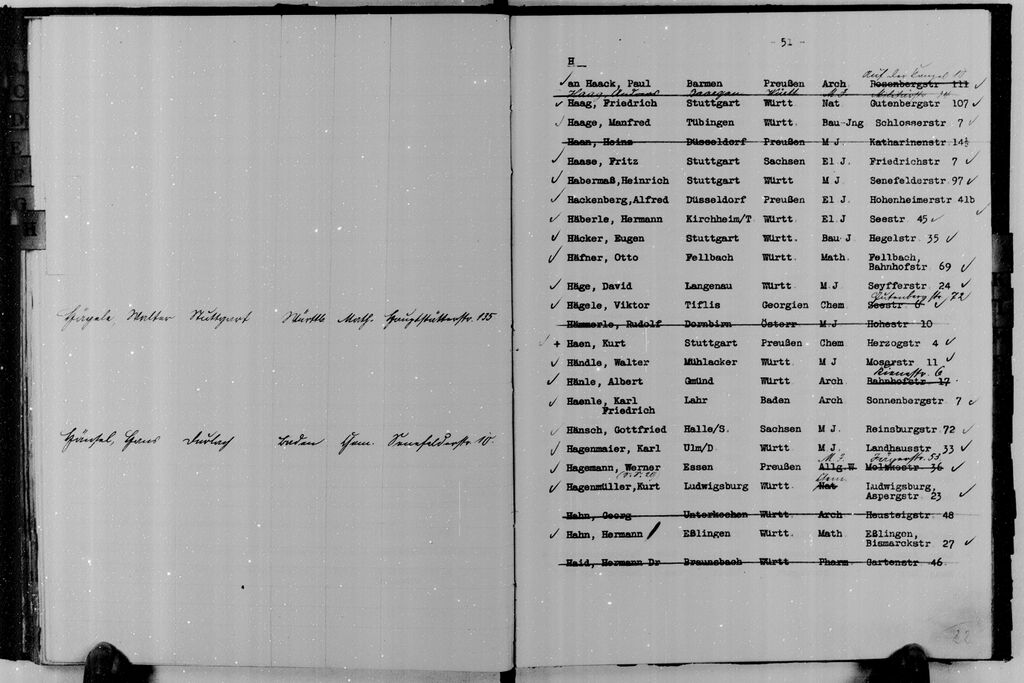 Hägele, Walter Stuttgart Württb Math. Hauptstätterstr. 135
Hänsel, Hans Durlach Baden Chem. Senefelderstr. 10.
- 51 -
H
Auf der
an Haack, Paul Barmen Preußen Arch Rosenbergstr 111
Haag, Friedrich Stuttgart Württ Nat Gutenbergstr 107
Haage, Manfred Tübingen Württ. Bau-Jng Schlosserstr 7
Haan, Heinz Düsseldorf Preußen M J. Katharinenstr 14½
Haase, Fritz Stuttgart Sachsen El J. Friedrichstr 7
Habermaß,Heinrich Stuttgart Württ M J Senefelderstr 97
Hackenberg,Alfred Düsseldorf Preußen El J. Hohenheimerstr 41b
Häberle, Hermann Kirchheim/T Württ. El.J Seestr 45
Häcker, Eugen Stuttgart Württ. Bau J Hegelstr 35
Häfner, Otto Fellbach Württ. Math. Fellbach,
Bahnhofstr 69
Häge, David Langenau Württ M.J Seyfferstr 24
Gutenbergstr 72
Hägele, Viktor Tiflis Georgien Chem Seestr 6
Hämmerle, Rudolf Dornbirn Österr M J Hohestr 10
+ Haen, Kurt Stuttgart Preußen Chem Herzogstr 4
Händle, Walter Mühlacker Württ M J Moserstr 11
Hänle, Albert Gmünd Württ Arch Bahnhofstr 17
Haenle, Karl Lahr Baden Arch Sonnenbergstr 7
Friedrich
Hänsch, Gottfried Halle/S. Sachsen M J. Reinsburgstr 72
Hagenmaier, Karl Ulm/D Württ M J. Landhausstr 33
M.J. Jägerstr. 53
Hagemann, Werner Essen Preußen Allg.W. Moltkestr 36
Chem.
Hagenmüller,Kurt Ludwigsburg Württ. Nat Ludwigsburg,
Aspergstr 23
Hahn, Georg Unterkochen Württ. Arch Heusteigstr 48
Hahn, Hermann Eßlingen Württ. Math Eßlingen,
Bismarckstr 27
Haid, Hermann Dr Braunsbach Württ Pharm Gartenstr 46
22